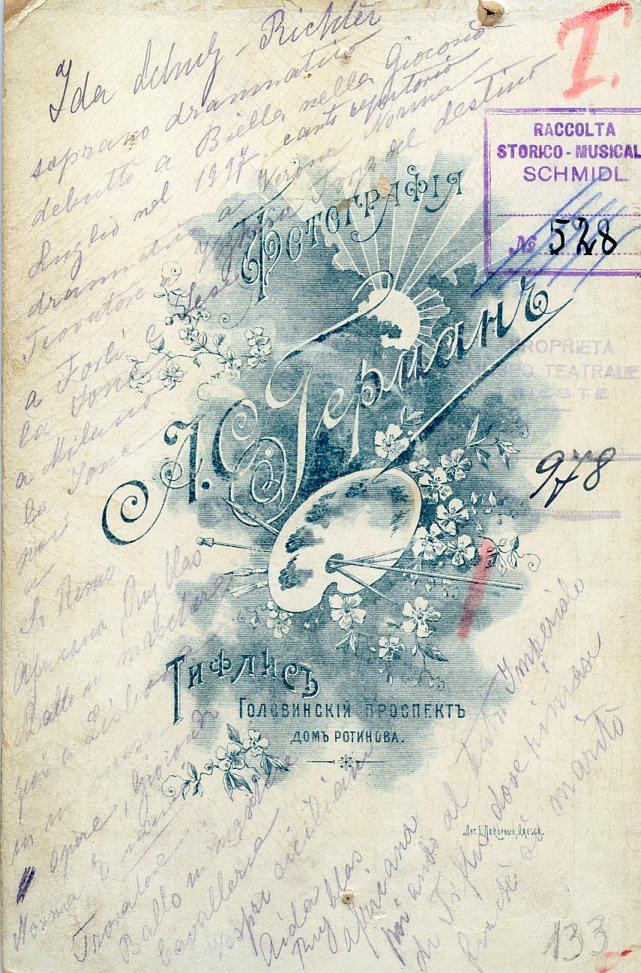 Ida Schulz-Richter
soprano drammatico
debuttò a Biella nella Gioconda
Luglio nel 1897, cantò repertorio
drammatico a Verona Norma
Trovatore Forza del destino
a Forlì e Jesi
la Jone
a Milano
la Jone
poi
a
S. Remo
Africana Ruy Blas
Ballo in maschera
poi a Lisbona
in
opere, Gioconda
Norma, E
Trovatore
Ballo in maschera
Cavalleria
Vespri siciliani
Aida Blas
Ruy
africana
poi andò al teatro Imperiale
di Tiflis dove rimase
finchè si maritò
I.
RACCOLTA
STORICO-MUSICAL
SCHMIDL
№ 528
PROPRIETA
TEATRALE
978
Фотографія
А.С. Германъ
Тифлисъ
Головинскій проспектъ
домъ Ротинова.
Лит. I. Покорный, Одесса.
133